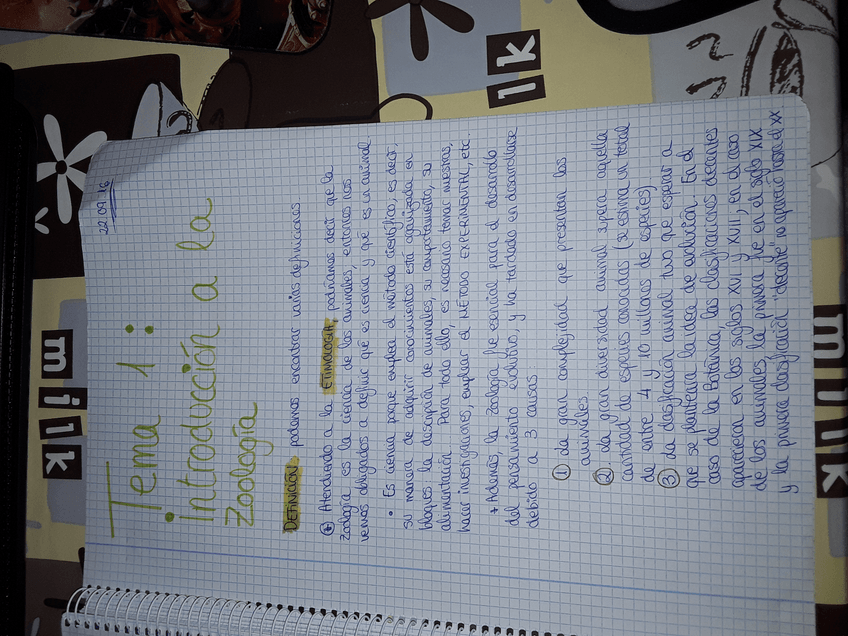 22.09.16
Tema 1:
Introducción a la
Zoología
DEFINICIÓN: podemos encontrar varias definiciones
* Atendiendo a la ETIMOLOGÍA, podríamos decir que la
Zoología es la ciencia de los animales, entonces nos
vemos obligados a definir qué es ciencia y qué es un animal
• Es ciencia porque emplea el método científico, es decir,
su manera de adquirir conocimientos está organizada en
bloques: la descripción de animales, su comportamiento, su
alimentación. Para todo ello, es necesario tomar muestras,
hacer investigaciones, emplear el MÉTODO EXPERIMENTAL, etc.
* Además, la Zoología fue esencial para el desarrollo
del pensamiento evolutivo, y ha tardado en desarrollarse
debido a 3 causas
① La gran complejidad que presentan los
animales
② La gran diversidad animal supera aquella
cantidad de especies conocidas (se estima un total
de entre 4 y 10 millones de especies)
③ La clasificación animal tuvo que esperar a
que se planteara la idea de evolución. En el
caso de la Botánica, las clasificaciones decentes
aparecieron en los siglos XVI y XVII, en el caso
de los animales, la primera fue en el siglo XIX
y la primera clasificación "decente" no apareció hasta el XX
milk
milk
lk